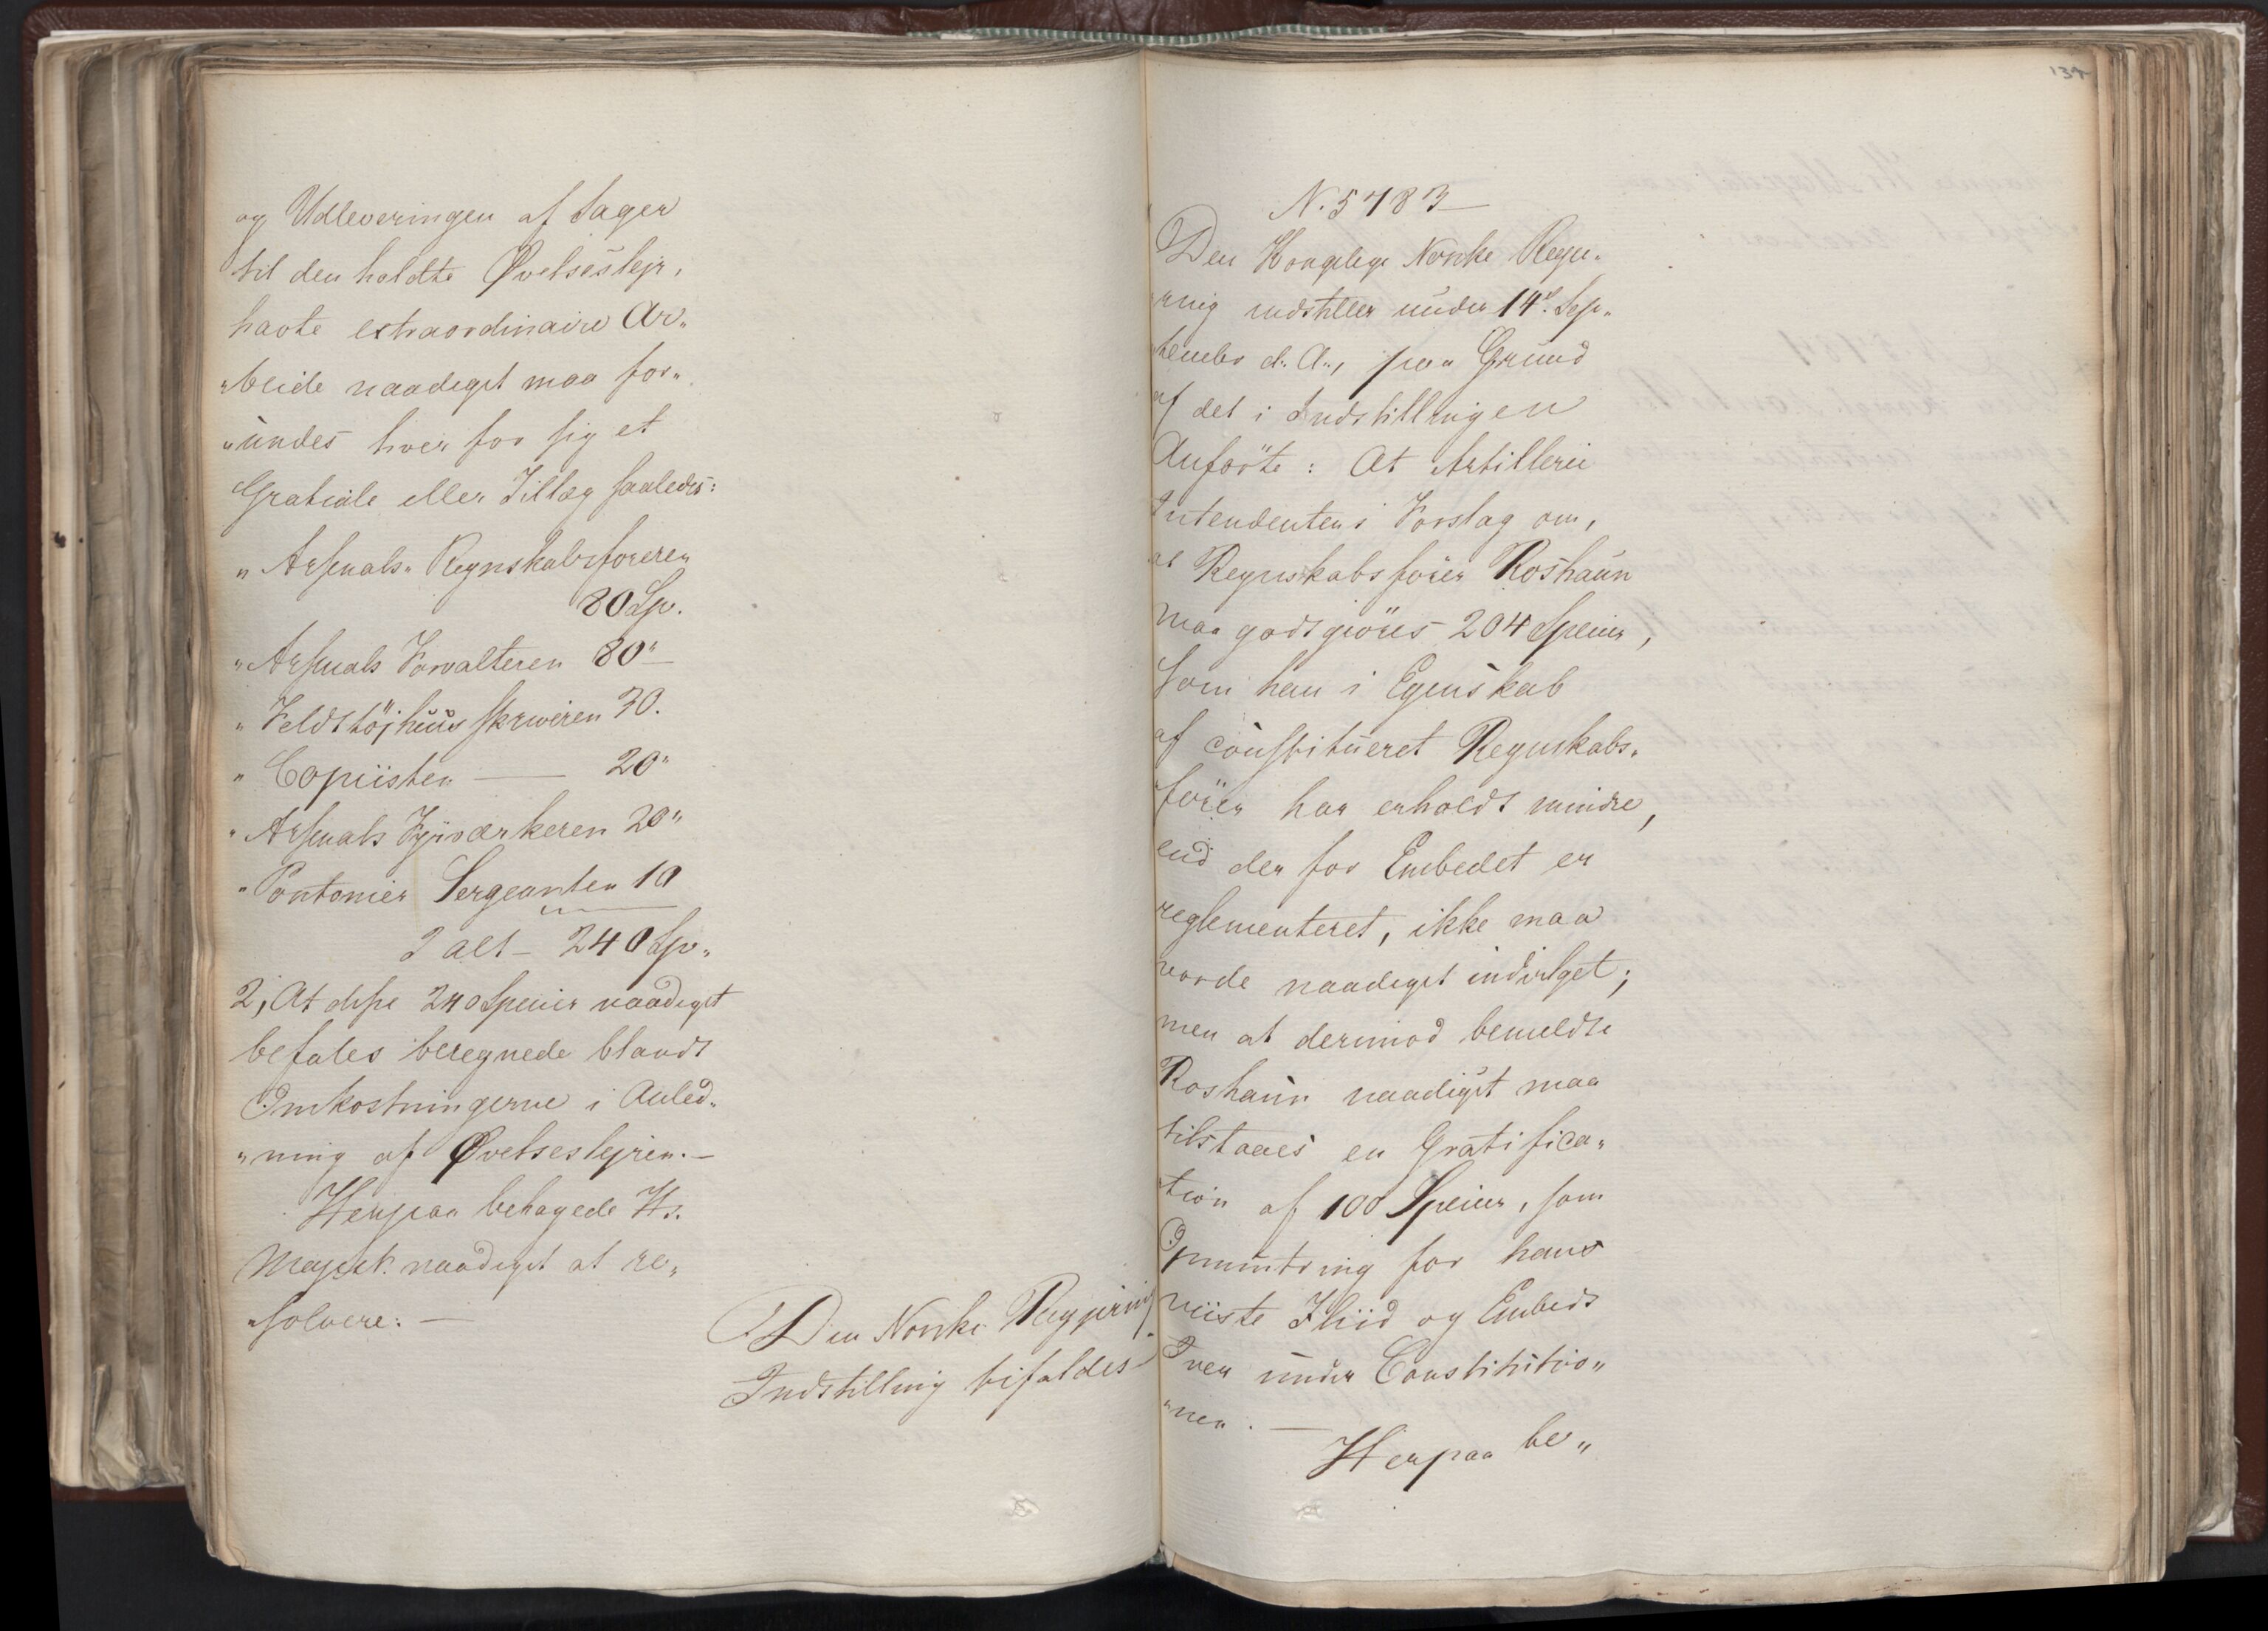 og Udleveringen af Sager
til den holdte Øvelsesleyr,
havte extraordinaire Ar„
„beide naadigst maa for„
„undes hver for sig et
Gratiale eller Tillæg saaledes:
„ Arsenals„ Regnskabsföreren
80 Sp.
„ Arsenals Forvalteren 80"
„ Feldttöjhuus skriveren 30.
„ Copiisten — 20"
„ Arsenals Fyrværkeren 20"
„ Pontonier Sergeanten 10
I alt - 240 Sp„
2, At disse 240 Specier naadigst
befales beregnede blandt
Omkostningerne i Anled„
„ning af Øvelsesleyren. —
Herpaa behagede Hs.
Majest. naadigst at re„
„solvere: —
Den Norske Regjerings
Indstilling bifaldes
134
N. 5783 —
Den Kongelige Norske Regje„
ring indstiller under 14d. Sep„
„tember d. A., paa Grund
af det i Indstillingen
Anförte: At Artillerie
Intendentens Forslag om,
at Regnskabsförer Roshaun
maa godtgiöres 204 Specier,
som han i Egenskab
af constitueret Regnskabs„
förer har erholdt mindre,
end der for Embedet er
reglementeret, ikke maa
vorde naadigst indvilget;
men at derimod bemeldte
Roshaun naadigst maa
tilstaaes en Gratifica„
tion af 100 Specier, som
Opmuntring for hans
viiste Fliid og Embeds
Iver under Constitutio„
„nen. —
Herpaa be„